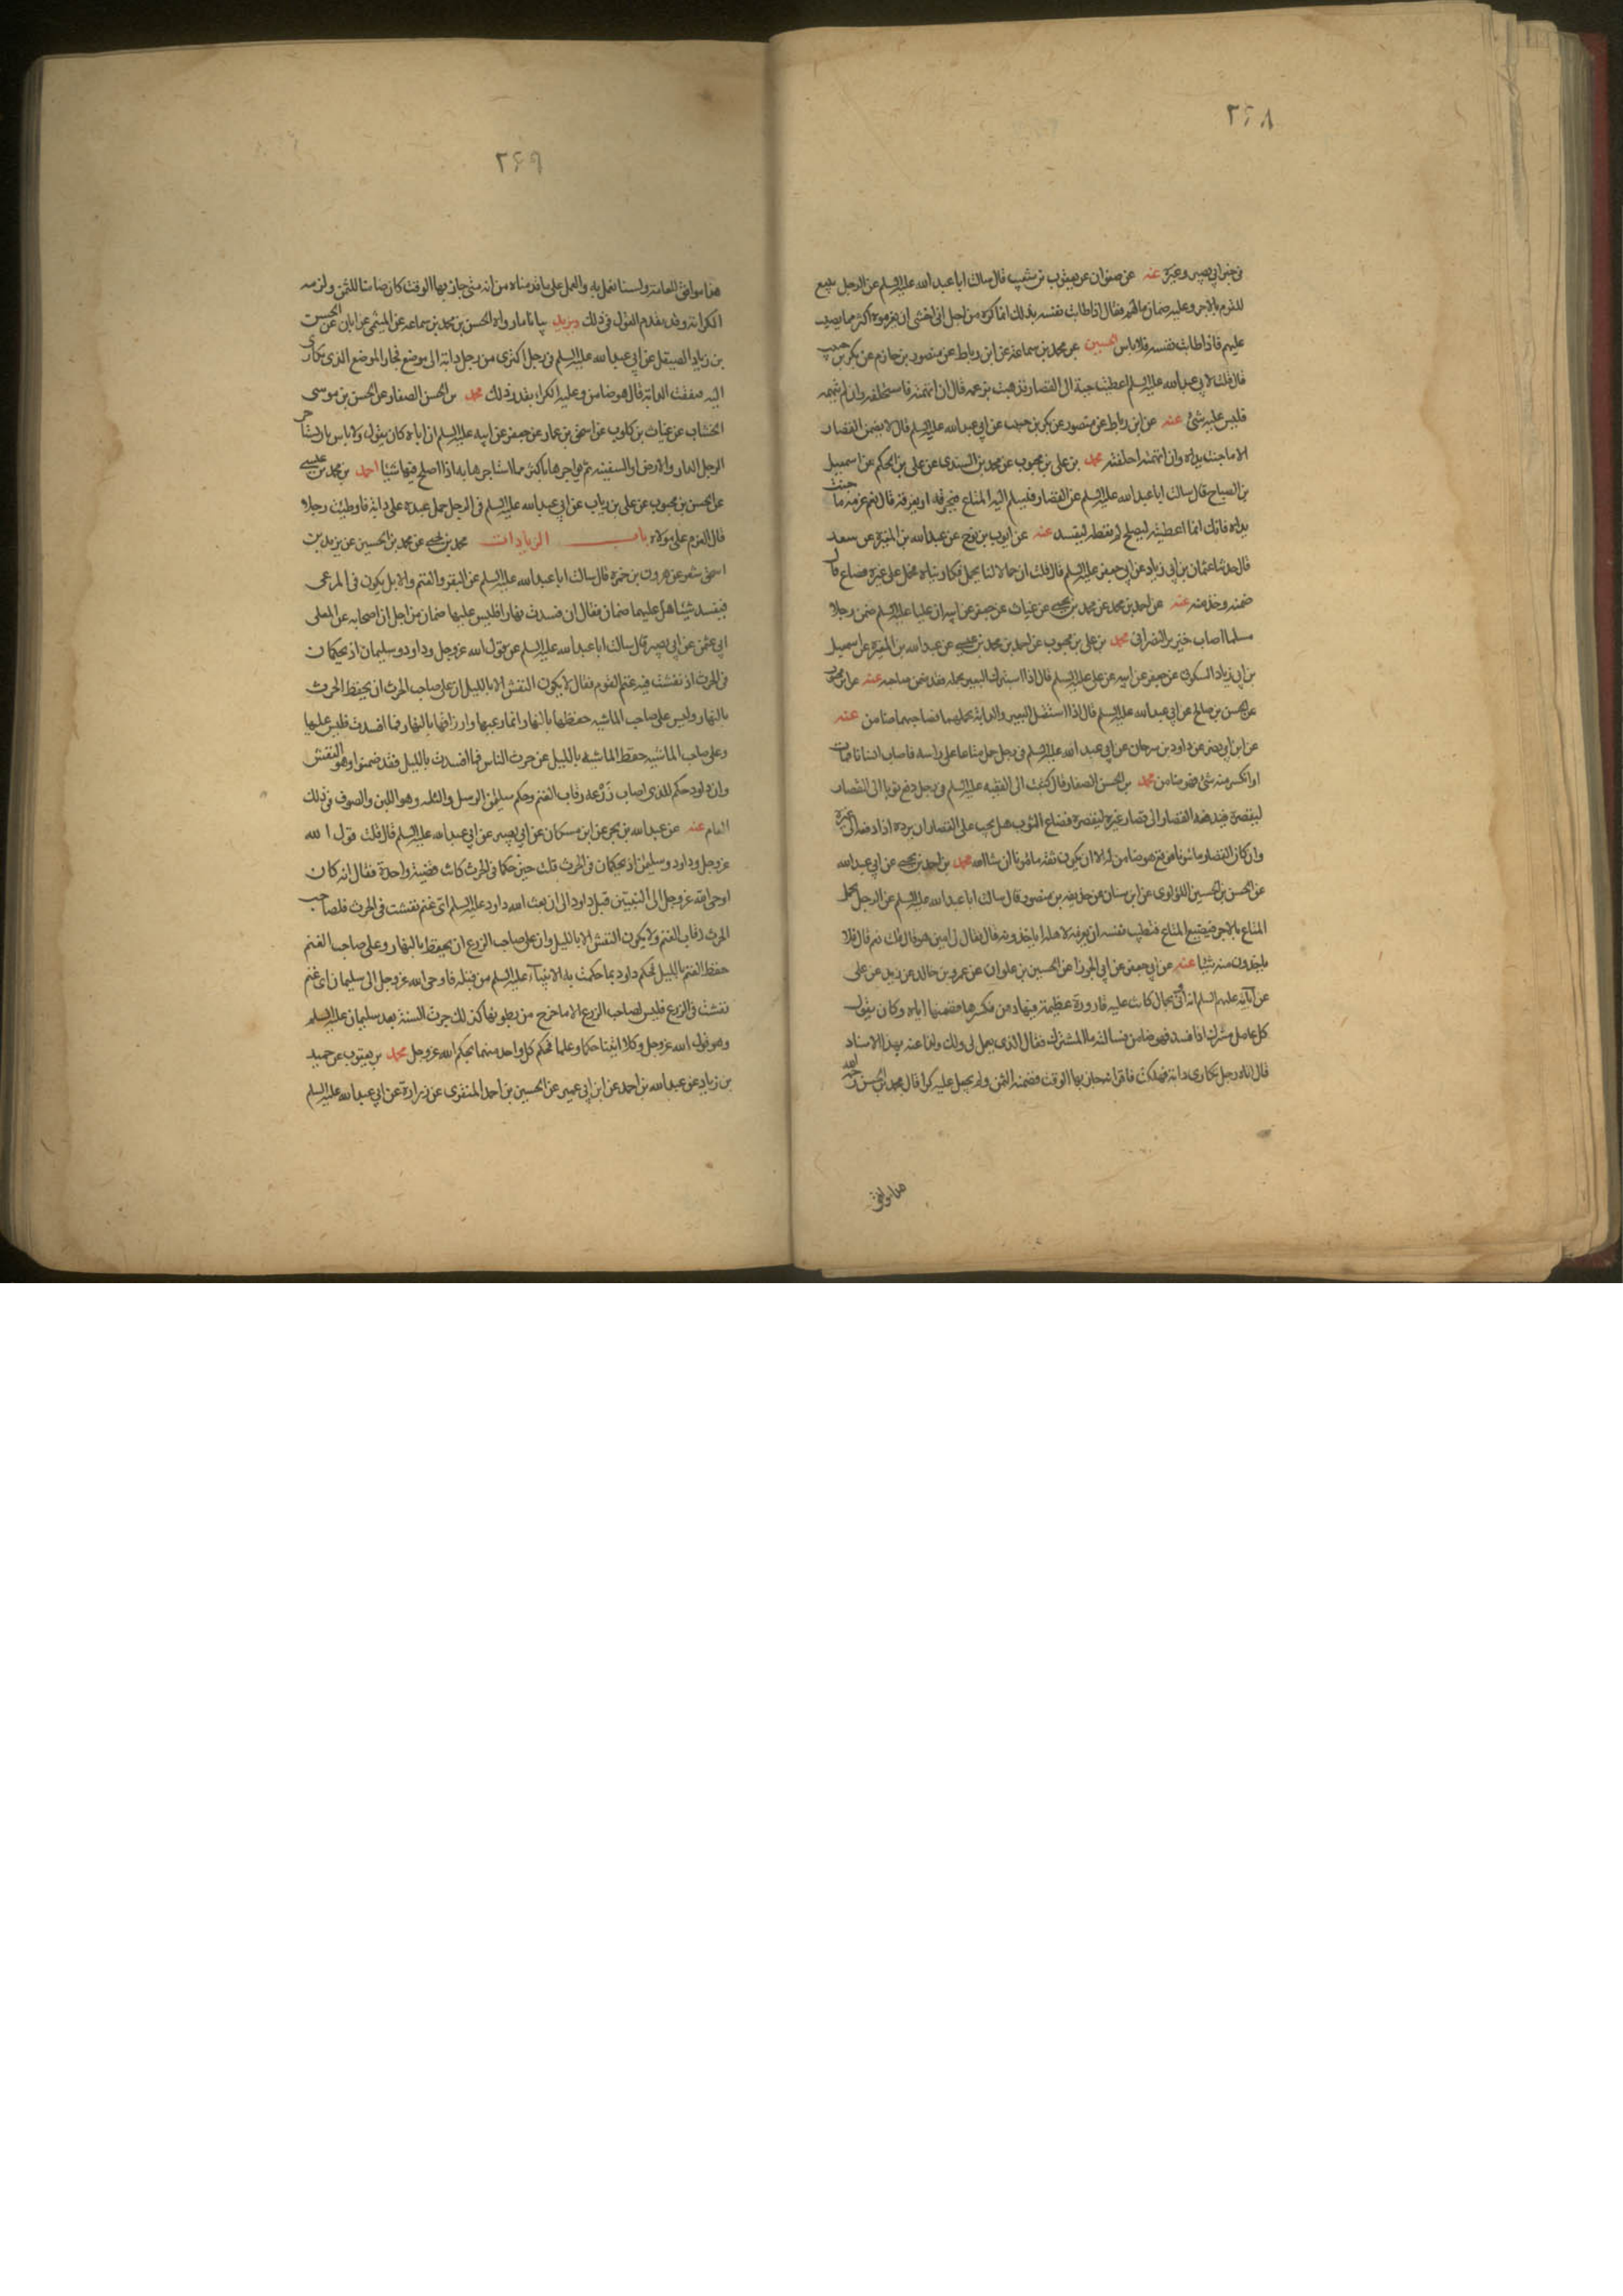 ٢٦٨
في خبر ابي بصير وغيره عنه عن صفوان عن يعقوب بن شعيب قال سالت ابا عبد الله عليه السلم عن الرجل يبيع
للقوم بالاجر وعليه ضمان مالهم فقال اذا طابت نفسه بذلك انما اكره من اجل اني اخشى ان يغرموه اكثر مما يصيب
عليهم فاذا طابت نفسه فلا باس الحسين عن محمد بن سماعة عن ابن رباط عن منصور بن حازم عن بكر بن حبيب
قال قلت لابي عبد الله عليه السلم اعطيت جبة الى القصار فذهبت بزعمه قال ان اتهمته فاستحلفه وان لم تتهمه
فليس عليه شئ عنه عن ابن رباط عن منصور عن بكر بن حبيب عن ابي عبد الله عليه السلم قال لا يضمن القصار
الا ما جنت يداه وان اتهمته احلفته محمد بن علي بن محبوب عن محمد بن السندي عن علي بن الحكم عن اسمعيل
بن الصباح قال سالت ابا عبد الله عليه السلم عن القصار فيسلم اليه المتاع فيحرقه او يغرقه قال نعم غرمه ما جنت
يداه فانك انما اعطيته ليصلح لم تعطه ليفسد عنه عن ايوب بن نوح عن عبد الله بن المغيرة عن سعد
قال حدثنا عثمان بن ابي زياد عن ابي جعفر عليه السلم قال قلت ان حمالا لنا يحمل فكاريناه فحمل على غيره فضاع قال
ضمنه وخذ منه عنه عن احمد بن محمد عن محمد بن يحيى عن غياث عن جعفر عن ابيه ان عليا عليه السلم ضمن رجلا
مسلما اصاب خنزير النصراني محمد بن علي بن محبوب عن احمد بن محمد بن عيسى عن عبد الله بن المغيرة عن اسمعيل
بن ابي زياد السكوني عن جعفر عن ابيه عن علي عليه السلم قال اذا استبرك البعير بحمله فقد ضمن صاحبه عنه عن ابن محبوب
عن الحسن بن صالح عن ابي عبد الله عليه السلم قال اذا استقل البعير والدابة بحملهما فصاحبهما ضامن عنه
عن ابن ابي نصر عن داود بن سرحان عن ابي عبد الله عليه السلم في رجل حمل متاعا على راسه فاصاب انسانا فمات
او انكسر منه شئ فهو ضامن محمد بن الحسن الصفار قال كتبت الى الفقيه عليه السلم في رجل دفع ثوبا الى القصار
ليقصره فيدفعه القصار الى قصار غيره ليقصره فضاع الثوب هل يجب على القصار ان يرده اذا دفعه الى غيره
وان كان القصار مامونا فوقع هو ضامن له الا ان يكون ثقة مامونا ان شاء الله محمد بن احمد بن يحيى عن ابي عبد الله
عن الحسن بن الحسين اللؤلؤي عن ابن سنان عن حذيفة بن منصور قال سالت ابا عبد الله عليه السلم عن الرجل يحمل
المتاع بالاجر فيضيع المتاع فتطيب نفسه ان يغرمه لاهله اياخذونه قال فقال لي امين هو قال قلت نعم قال فلا
ياخذون منه شيئا عنه عن ابي جعفر عن ابي الجوزا عن الحسين بن علوان عن عمرو بن خالد عن زيد عن علي
عن آبائه عليهم السلم انه اتى بحمال كانت عليه قارورة عظيمة فيها دهن فكسرها فضمنها اياه وكان يقول
كل عامل مشترك اذا افسد فهو ضامن فسالته ما المشترك فقال الذي يعمل لي ولك ولذا عنه بهذا الاسناد
قال اتاه رجل تكارى دابة فهلكت فاقر انه جاز بها الوقت فضمنه الثمن ولم يجعل عليه كرا قال محمد بن الحسن رحمه الله
هذا موافق
٢٦٩
هذا موافق للعامة ولسنا نعمل به والعمل على ما قدمناه من انه متى جاز بها الوقت كان ضامنا للثمن ولزمه
الكرا وقد تقدم القول في ذلك ويزيد بيانا ما رواه الحسن بن محمد بن سماعة عن الميثمي عن ابان عن الحسن
بن زياد الصيقل عن ابي عبد الله عليه السلم في رجل اكترى من رجل دابة الى موضع فجاز الموضع الذي تكارى
اليه فنفقت الدابة قال هو ضامن وعليه الكراء بقدر ذلك محمد بن الحسن الصفار عن الحسن بن موسى
الخشاب عن غياث بن كلوب عن اسحق بن عمار عن جعفر عن ابيه عليه السلم ان اباه كان يقول لا باس بان يستاجر
الرجل الدار والارض او السفينة ثم يواجرها باكثر مما استاجرها به اذا اصلح فيها شيئا احمد بن محمد بن عيسى
عن الحسن بن محبوب عن علي بن رياب عن ابي عبد الله عليه السلم في الرجل حمل عبده على دابة فاوطيت رجلا
قال الغرم على مولاه باب الزيادات محمد بن يحيى عن محمد بن الحسين عن يزيد بن
اسحق شعر عن هرون بن حمزة قال سالت ابا عبد الله عليه السلم عن البقر والغنم والابل يكون في المرعى
فيفسد شيئا هل عليهما ضمان فقال ان فسدت نهارا فليس عليها ضمان من اجل ان اصحابه عن المعلى
ابي عثمن عن ابي بصير قال سالت ابا عبد الله عليه السلم عن قول الله عز وجل وداود وسليمان اذ يحكمان
في الحرث اذ نفشت فيه غنم القوم فقال لا يكون النفش الا بالليل ان على صاحب الحرث ان يحفظ الحرث
بالنهار وليس على صاحب الماشية حفظها بالنهار انما رعيها وارزاقها بالنهار فما افسدت فليس عليها
وعلى صاحب الماشية حفظ الماشية بالليل عن حرث الناس فما افسدت بالليل فقد ضمنوا وهو النفش
وان داود حكم للذي اصاب زرعه رقاب الغنم وحكم سليمن الرسل والثلة وهو اللبن والصوف في ذلك
العام عنه عن عبد الله بن بحر عن ابن مسكان عن ابي بصير عن ابي عبد الله عليه السلم قال قلت قول الله
عز وجل وداود وسليمن اذ يحكمان في الحرث قلت حين حكما في الحرث كانت قضية واحدة فقال انه كان
اوحى الله عز وجل الى النبيين قبل داود الى ان بعث الله داود عليه السلم اى غنم نفشت في الحرث فلصاحب
الحرث رقاب الغنم ولا يكون النفش الا بالليل وان على صاحب الزرع ان يحفظ بالنهار وعلى صاحب الغنم
حفظ الغنم بالليل فحكم داود بما حكمت به الانبياء عليه السلم من قبله فاوحى الله عز وجل الى سليمان اى غنم
نفشت في الزرع فليس لصاحب الزرع الا ما خرج من بطونها كذلك جرت السنة بعد سليمان عليه السلم
وهو قول الله عز وجل وكلا اتينا حكما وعلما فحكم كل واحد منهما بحكم الله عز وجل محمد بن يعقوب عن حميد
بن زياد عن عبد الله بن احمد عن ابن ابي عمير عن الحسين بن احمد المنقري عن زرارة عن ابي عبد الله عليه السلم